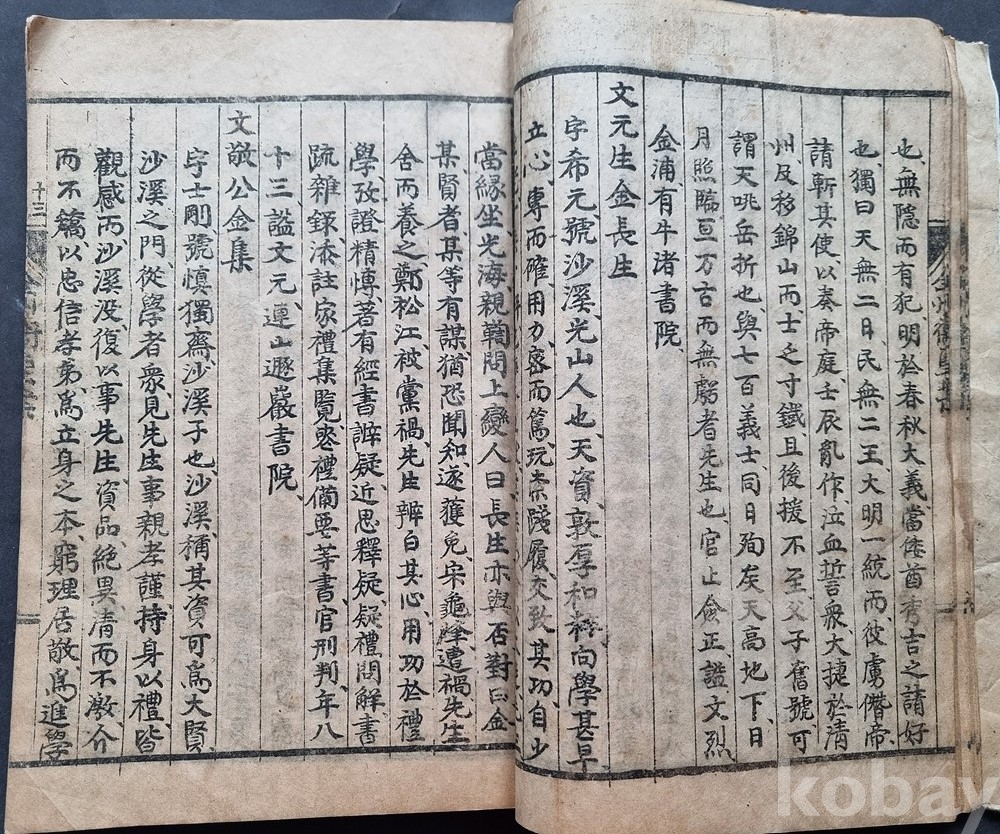 也、無隱而有犯、明於春秋大義、當倭酋秀吉之請好
也、獨曰天無二日、民無二王、大明一統、而彼虜僭帝、
請斬其使、以奏帝庭、壬辰亂作、泣血誓衆、大捷於淸
州、及移錦山、而士乏寸鐵、且後援不至、父子奮號、可
謂天咷岳折也、與七百義士、同日殉矣、天高地下、日
月照臨、亘万古而無虧者、先生也、官止僉正、謚文烈
金浦、有牛渚書院、
文元生金長生
字希元、號沙溪、光山人也、天資敦厚和粹、向學甚早
立心專而確、用力密而篤、玩索踐履、交致其功、自少
當緣坐、光海親鞫、問上變人曰、長生亦與否、對曰金
某、賢者、某等有謀、猶恐聞知、遂獲免、宋龜峰遭禍、先生
舍而養之、鄭松江被黨禍、先生辨白其心、用功於禮
學、攷證精愽、著有經書辨疑、近思釋疑、疑禮問解、書
疏雜錄、添註家禮集覽、喪禮備要等書、官刑判、年八
十三、謚文元、連山遯巖書院、
文敬公金集
字士剛、號愼獨齋、沙溪子也、沙溪稱其資可爲大賢、
沙溪之門、從學者衆、見先生事親孝謹、持身以禮、皆
觀感、而沙溪没、復以事先生、資品絶異、淸而不激、介
而不矯、以忠信孝弟、爲立身之本、窮理居敬、爲進學
十三
kobay